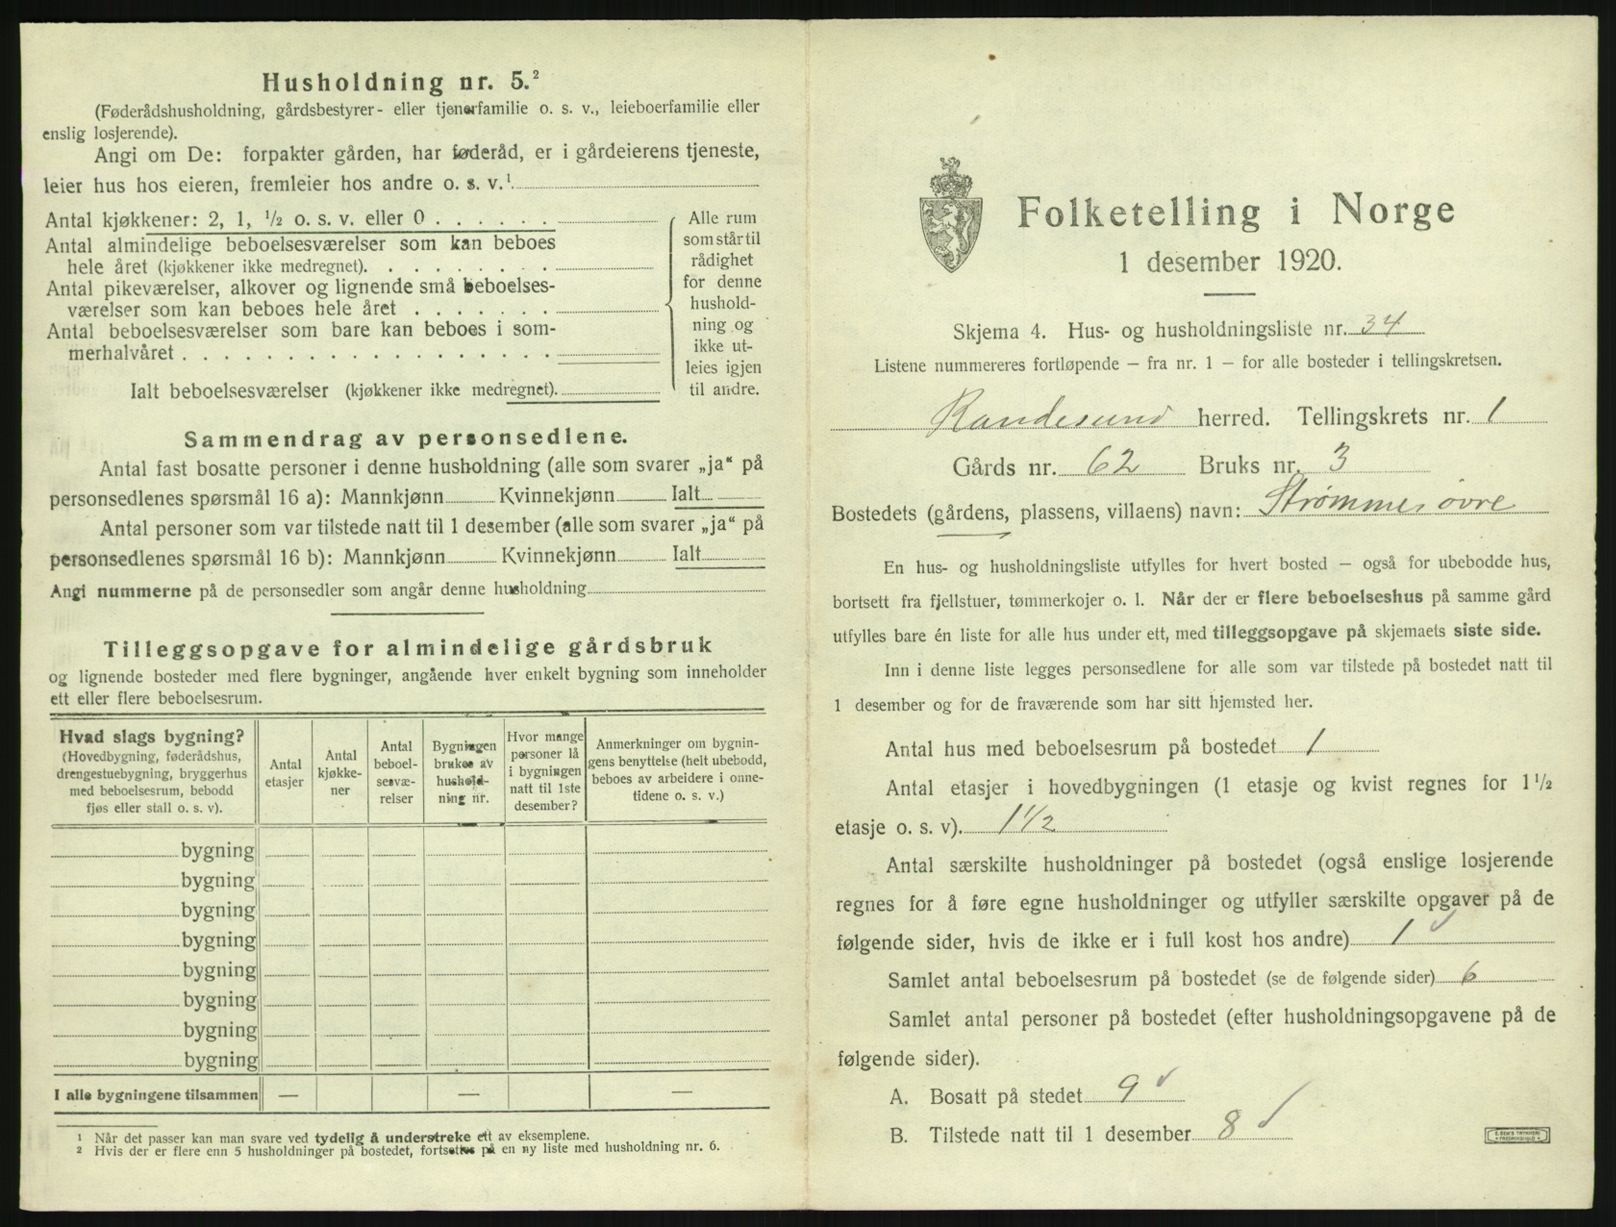 Husholdning nr. 5.²
(Føderådshusholdning, gårdsbestyrer- eller tjenerfamilie o. s. v., leieboerfamilie eller
enslig losjerende).
Angi om De: forpakter gården, har føderåd, er i gårdeierens tjeneste,
leier hus hos eieren, fremleier hos andre o. s. v.¹
Antal kjøkkener: 2, 1, ½ o. s. v. eller 0 . . . . . .
Antal almindelige beboelsesværelser som kan beboes
hele året (kjøkkener ikke medregnet). . . . . . . . .
Antal pikeværelser, alkover og lignende små beboelses-
værelser som kan beboes hele året . . . . . . .
Antal beboelsesværelser som bare kan beboes i som-
merhalvåret . . . . . . . . . . . . . . . . . .
Ialt beboelsesværelser (kjøkkener ikke medregnet).
Alle rum
som står til
rådighet
for denne
hushold-
ning og
ikke ut-
leies igjen
til andre.
Sammendrag av personsedlene.
Antal fast bosatte personer i denne husholdning (alle som svarer „ja“ på
personsedlenes spørsmål 16 a): Mannkjønn Kvinnekjønn Ialt
Antal personer som var tilstede natt til 1 desember (alle som svarer „ja“ på
personsedlenes spørsmål 16 b): Mannkjønn Kvinnekjønn Ialt
Angi nummerne på de personsedler som angår denne husholdning
Tilleggsopgave for almindelige gårdsbruk
og lignende bosteder med flere bygninger, angående hver enkelt bygning som inneholder
ett eller flere beboelsesrum.
Hvad slags bygning?
(Hovedbygning, føderådshus,
drengestuebygning, bryggerhus
med beboelsesrum, bebodd
fjøs eller stall o. s. v).
Antal
etasjer
Antal
kjøkke-
ner
Antal
beboel-
sesvæ-
relser
Bygningen
brukes av
hushold-
ning nr.
Hvor mange
personer lå
i bygningen
natt til 1ste
desember?
Anmerkninger om bygnin-
gens benyttelse (helt ubebodd,
beboes av arbeidere i onne-
tidene o. s. v.)
bygning
bygning
bygning
bygning
bygning
bygning
bygning
bygning
I alle bygningene tilsammen — — —
¹ Når det passer kan man svare ved tydelig å understreke ett av eksemplene.
² Hvis der er flere enn 5 husholdninger på bostedet, fortsettes på en ny liste med husholdning nr. 6.
Folketelling i Norge
1 desember 1920.
Skjema 4. Hus- og husholdningsliste nr. 34
Listene nummereres fortløpende – fra nr. 1 – for alle bosteder i tellingskretsen.
Randesund herred. Tellingskrets nr. 1
Gårds nr. 62 Bruks nr. 3
Bostedets (gårdens, plassens, villaens) navn: Strømme øvre
En hus- og husholdningsliste utfylles for hvert bosted – også for ubebodde hus,
bortsett fra fjellstuer, tømmerkojer o. l. Når der er flere beboelseshus på samme gård
utfylles bare én liste for alle hus under ett, med tilleggsopgave på skjemaets siste side.
Inn i denne liste legges personsedlene for alle som var tilstede på bostedet natt til
1 desember og for de fraværende som har sitt hjemsted her.
Antal hus med beboelsesrum på bostedet 1
Antal etasjer i hovedbygningen (1 etasje og kvist regnes for 1½
etasje o. s. v). 1½
Antal særskilte husholdninger på bostedet (også enslige losjerende
regnes for å føre egne husholdninger og utfyller særskilte opgaver på de
følgende sider, hvis de ikke er i full kost hos andre) 1
Samlet antal beboelsesrum på bostedet (se de følgende sider) 6
Samlet antal personer på bostedet (efter husholdningsopgavene på de
følgende sider).
A. Bosatt på stedet 9
B. Tilstede natt til 1 desember 8